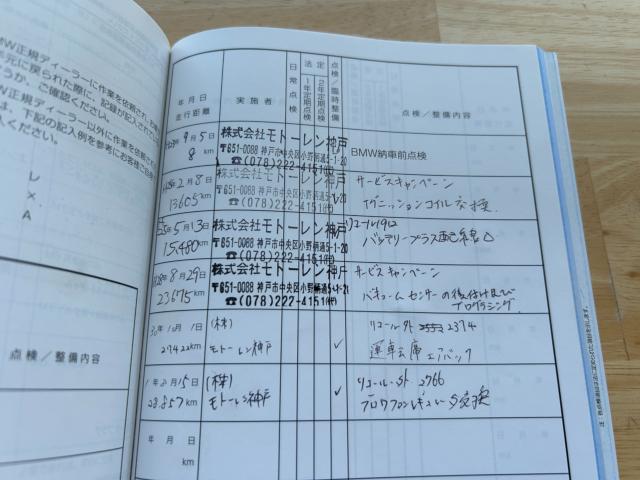 MW正規ディーラーに作業を依頼され、お車が
手元に戻られた際に、記録が記入されて
どうか、ご確認ください。
MW正規ディーラー以外に作業を依頼
は、下記の記入例を参考にお客様ご自
入ください。
レ
×
A
点検/整備内容
年月日
走行距離
実施者
日常点検
法定
1年定期点検
2年定期点検
点検/臨時整備
点検/整備内容
年9月5日
8 km
株式会社モトーレン神戸
〒651-0088 神戸市中央区小野柄通5-1-20
☎(078)222-4151㈹
BMW納車前点検
年2月8日
13605 km
株式会社モトーレン神戸
〒651-0088 神戸市中央区小野柄通5-1-20
☎(078)222-4151㈹
サービスキャンペーン
イグニッションコイル交換
年5月13日
15,480 km
株式会社モトーレン神戸
〒651-0088 神戸市中央区小野柄通5-1-20
☎(078)222-4151㈹
リコール
バッテリープラス配線
年8月29日
23675 km
株式会社モトーレン神戸
〒651-0088 神戸市中央区小野柄通5-1-21
☎(078)222-4151㈹
サービスキャンペーン
バキュームセンサーの後付け及び
プログラミング
30年10月1日
27422 km
(株)
モトーレン神戸
✓
リコール 外 2374
運転席エアバッグ
1年 月15日
28.857 km
(株)
モトーレン神戸
✓
リコール 外 2766
ブロワファンレギュレータ交換
年 月 日
km